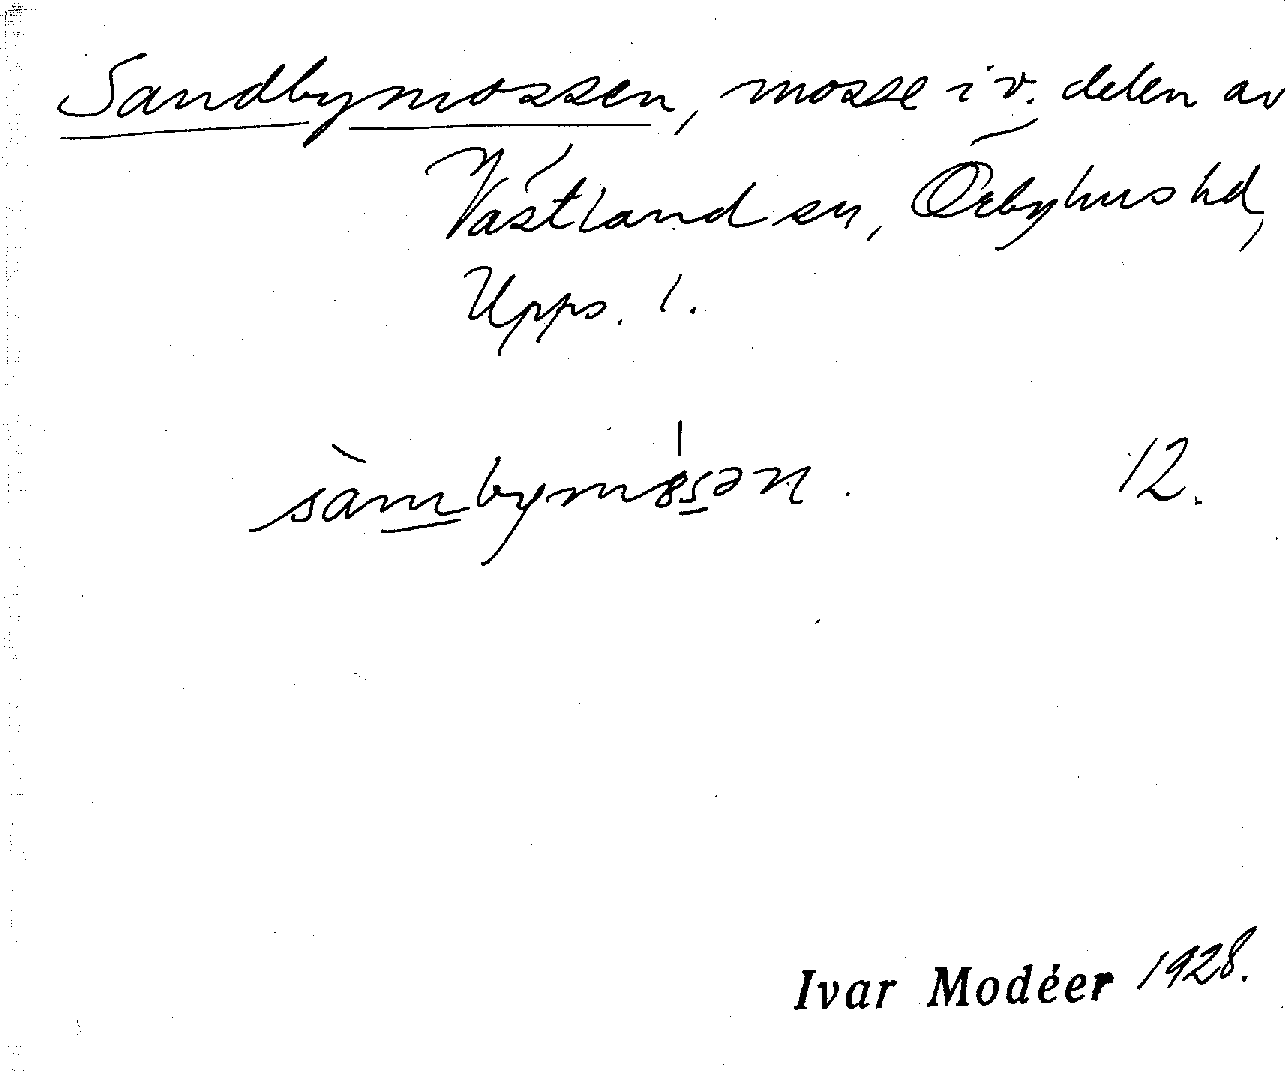 Sandbymossen, mosse i v. delen av
Västland sn, Örbyhus hd,
Upps. l.
sàmbymøsən. 12.
Ivar Modéer 1928.